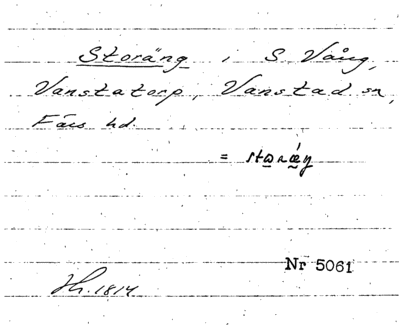 Storäng i S. Vång,
Vanstatorp, Vanstad sn,
Färs hd.
=
Nr 5061
Jh. 1814.